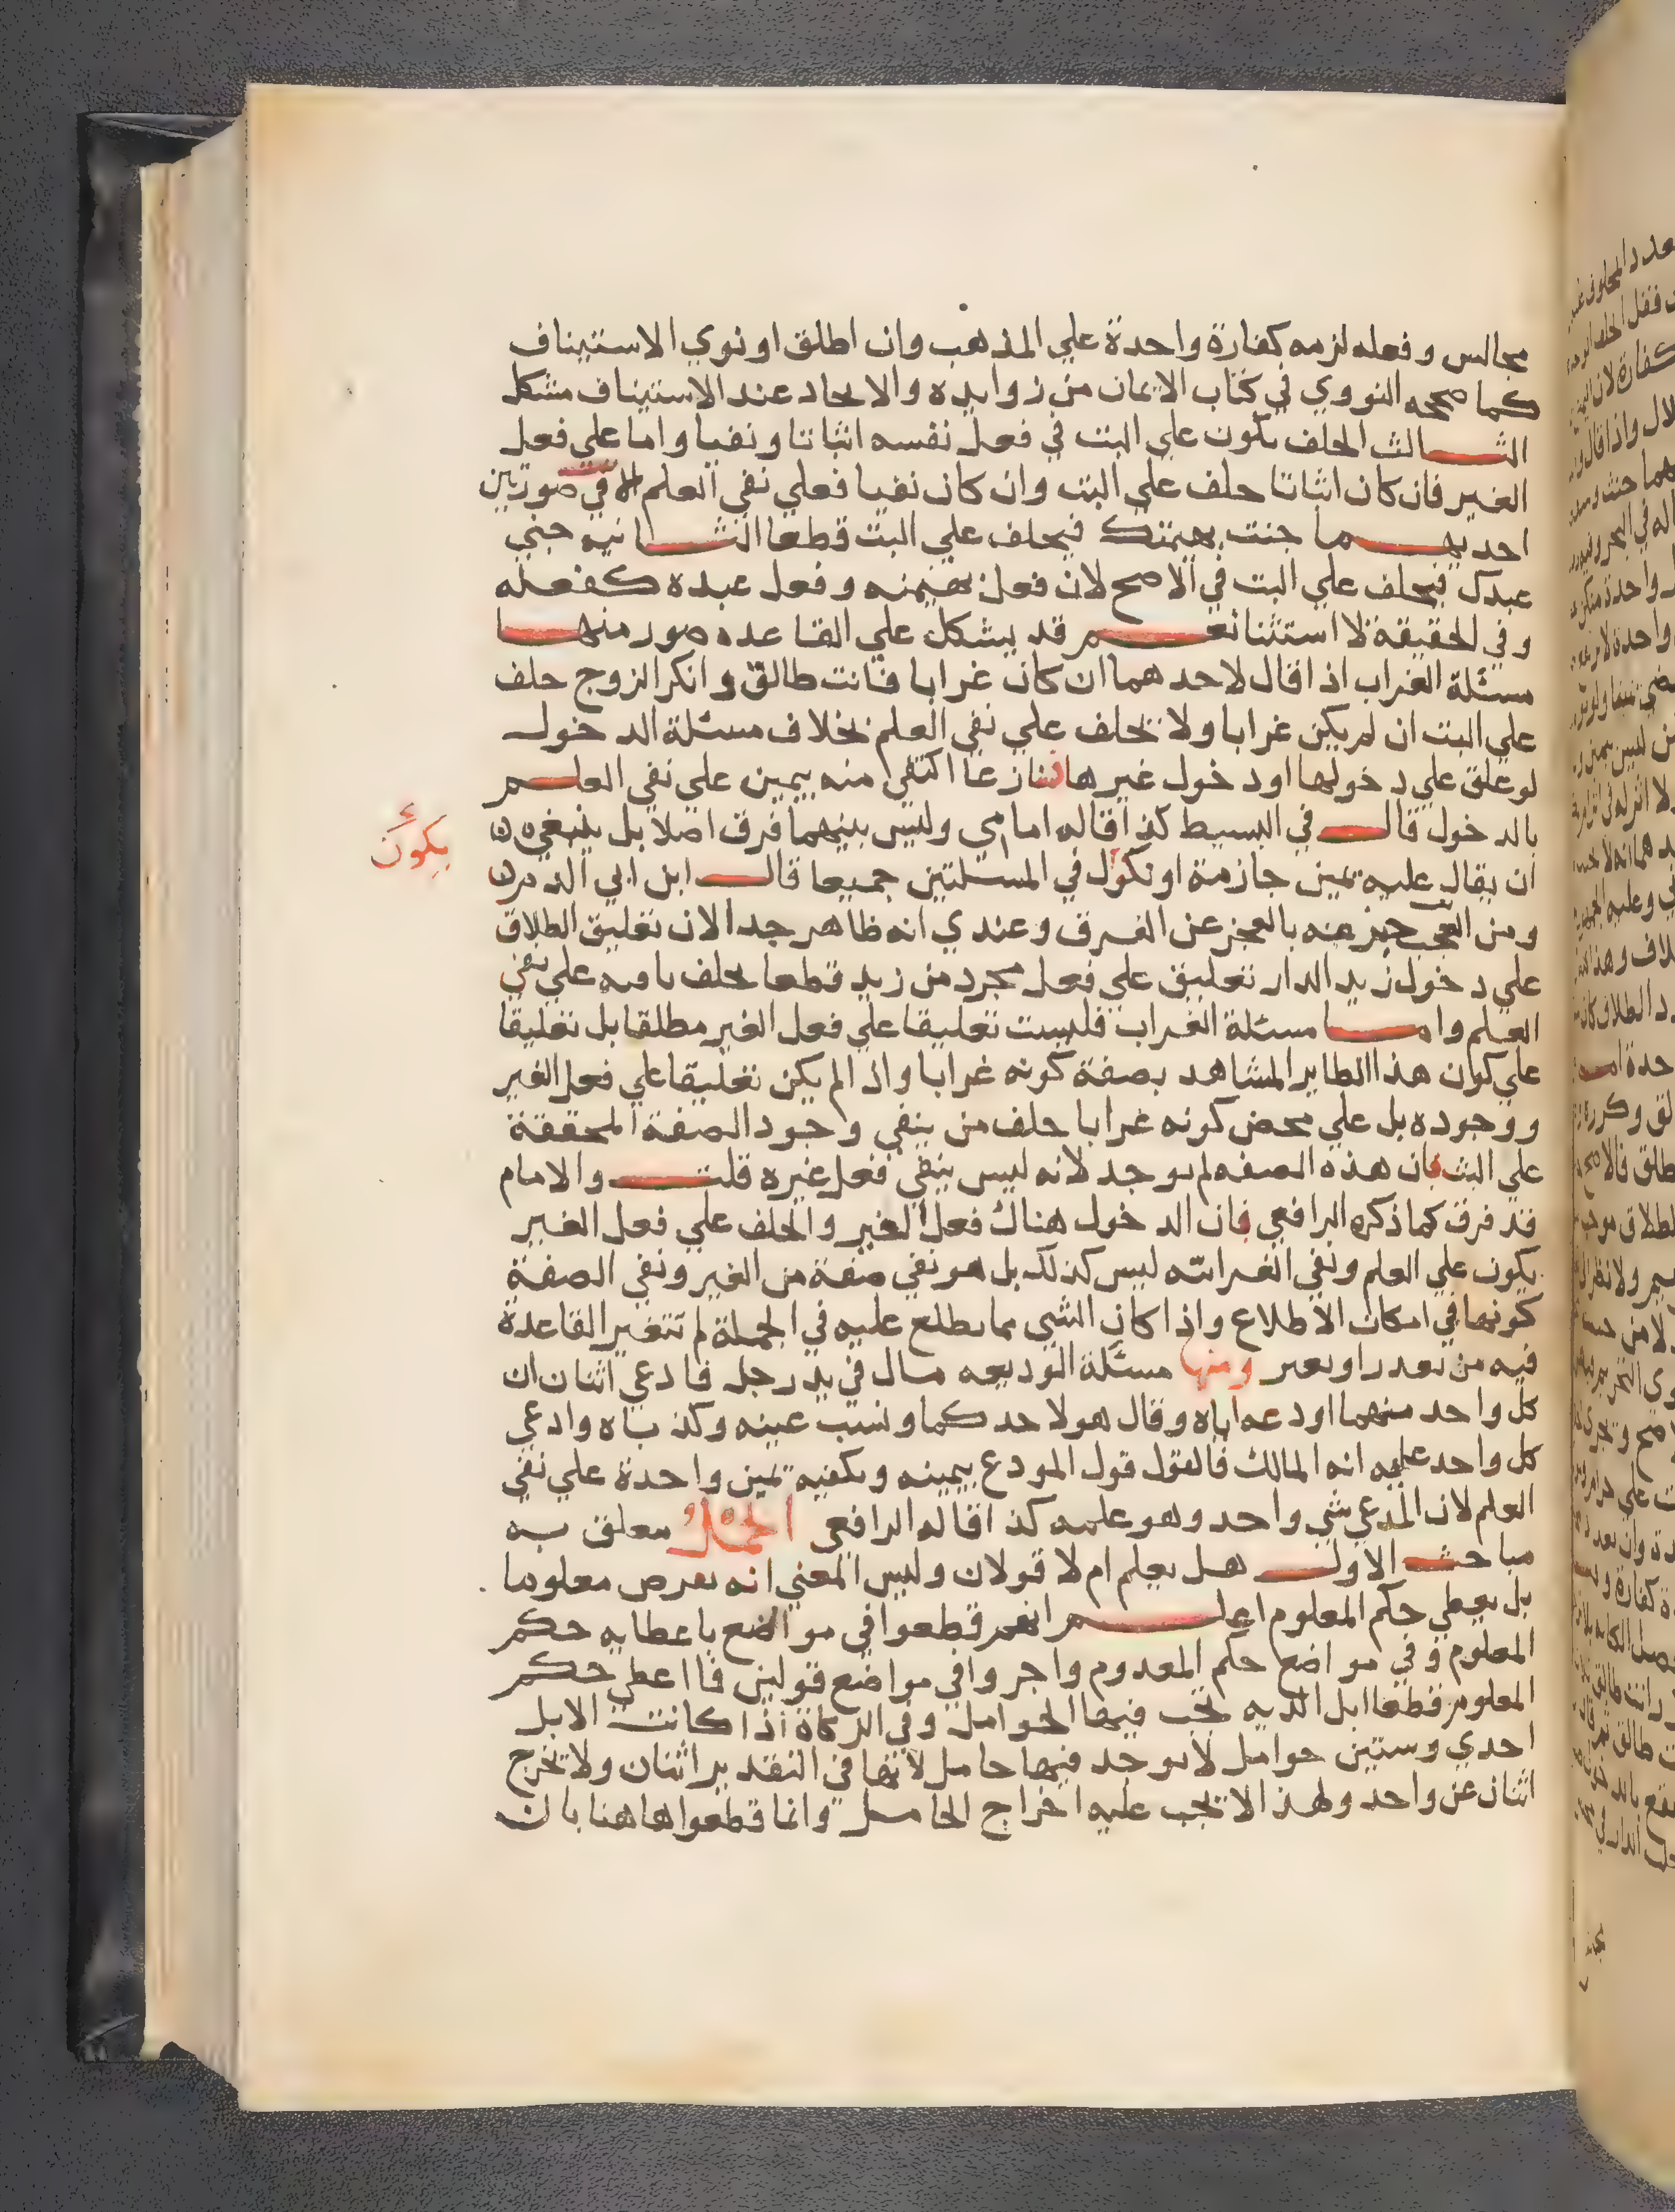 مجالس وفعله لزمه كفارة واحدة علي المذهب وان اطلق او نوي الاستيناف
كما صححه النووي في كتاب الايمان من زوايده والاتحاد عند الاستيناف مشكل
الثالث الحلف يكون علي البت في فعل نفسه اثباتا ونفيا واما علي فعل
الغير فان كان اثباتا حلف علي البت وان كان نفيا فعلي نفي العلم الا في صورتين
احديهما جنت بهيمتك فيحلف علي البت قطعا الثانيه جني
عبدك فيحلف علي البت في الاصح لان فعل بهيمته وفعل عبده كفعله
وفي الحقيقة لا استثنا نعم قد يشكل علي القاعده صور منها
مسئلة الغراب اذا قال لاحدهما ان كان غرابا فانت طالق وانكر الزوج حلف
علي البت ان لم يكن غرابا ولا يحلف علي نفي العلم بخلاف مسئلة الدخول
لو علق علي دخولها او دخول غيرها فتنازعا اكتفي منه بيمين علي نفي العلم
بالدخول قال في البسيط كذا قاله امامي وليس بينهما فرق اصلا بل ينبغي
ان يقال عليه يمين جازمة او نكول في المسئلتين جميعا قال ابن ابي الدم
ومن العجب عنه بالعجز عن الفرق وعندي انه ظاهر جدا لان تعليق الطلاق
علي دخول زيد الدار تعليق علي فعل مجرد من زيد قطعا يحلف علي نفي
العلم واما مسئلة الغراب فليست تعليقا علي فعل الغير مطلقا بل تعليقا
علي كون هذا الطاير المشاهد بصفة كونه غرابا واذا لم يكن تعليقا علي فعل الغير
ووجوده بل علي محض كونه غرابا حلف من ينفي وجود الصفة المحققة
علي البت فان هذه الصفه لم توجد لانه ليس ينفي فعل غيره قلت والامام
قد فرق كما ذكره الرافعي فان الدخول هناك فعل الغير والحلف علي فعل الغير
يكون علي العلم ونفي الغرابيه ليس كذلك بل هو نفي صفة من الغير ونفي الصفة
كونها في امكان الاطلاع واذا كان الشي مما يطلع عليه في الجملة لم تتغير القاعدة
فيه من ومنها مسئلة الوديعه مال في يد رجل فادعي اثنان ان
كل واحد منهما اودعه اياه وقال هو لاحدكما ونسيت عينه وكذباه وادعي
كل واحد عليه انه المالك فالقول قول المودع بيمينه ويكفيه يمين واحدة علي نفي
العلم لان المدعي شي واحد وهو علمه كذا قاله الرافعي الحمل معلق به
مباحث الاول هل يعلم ام لا قولان وليس المعني انه يعرض معلوما
بل يعطي حكم المعلوم اعلم انهم قطعوا في مواضع باعطايه حكم
المعلوم وفي مواضع حكم المعدوم واجروا في مواضع قولين فما اعطي حكم
المعلوم قطعا ابل الديه يجب فيها الحوامل وفي الزكاة اذا كانت الابل
احدي وستين حوامل لا يوجد فيها حامل لانها في التقدير اثنان ولا تخرج
اثنان عن واحد ولهذا لا يجب عليه اخراج الحامل وانما قطعوا هاهنا بان
يكون